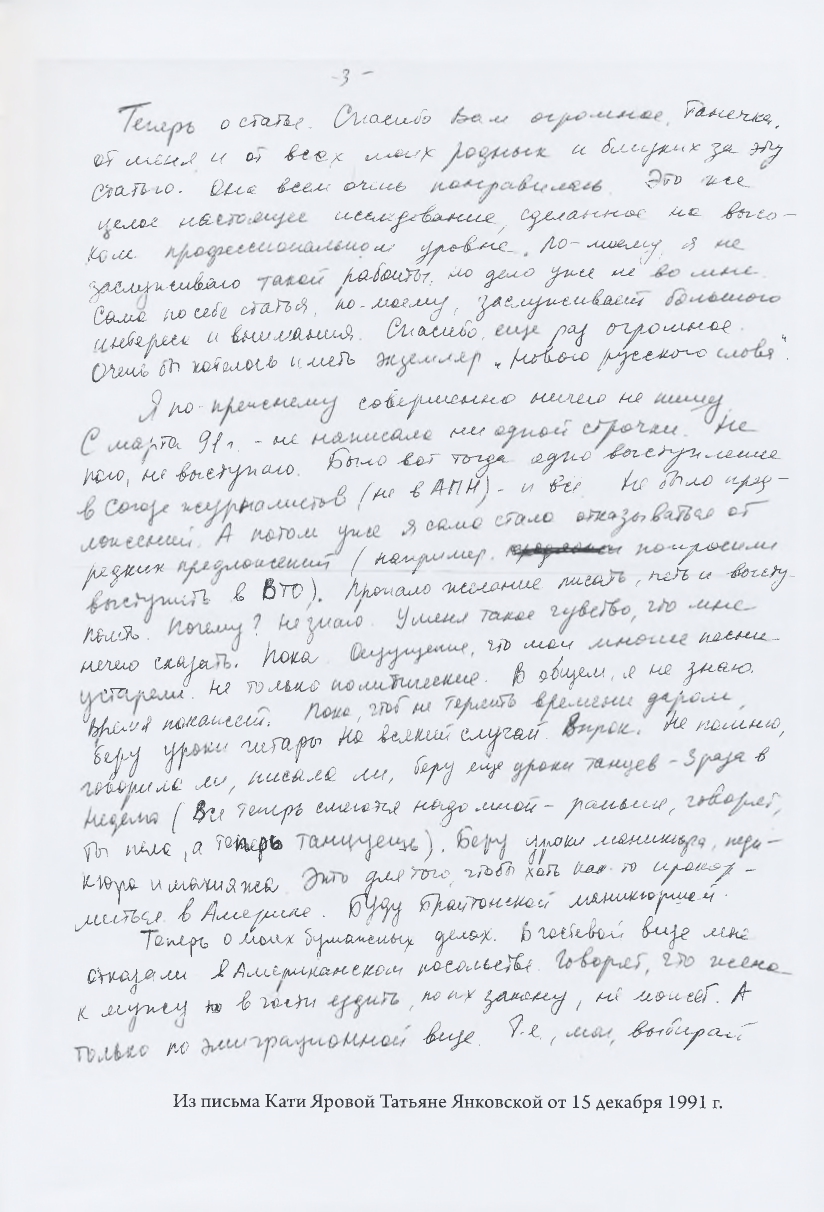 - 3 -
Теперь о статье. Спасибо Вам огромное, Танечка,
от меня и от всех моих родных и близких за эту
статью. Она всем очень понравилась. Это же
целое настоящее исследование, сделанное на высо-
ком профессиональном уровне. По-моему, я не
заслуживаю такой работы, но дело уже не во мне.
Сама по себе статья, по-моему, заслуживает большого
интереса и внимания. Спасибо еще раз огромное.
Очень бы хотелось иметь экземляр „Нового русского слова".
Я по-прежнему совершенно ничего не пишу.
С марта 91 г. - не написала ни одной строчки. Не
пою, не выступаю. Было вот тогда одно выступление
в Союзе журналистов (не в АПН) - и все. Не было пред-
ложений. А потом уже я сама стала отказываться от
редких предложений (например, попросили
выступить в ВТО). Пропало желание писать, петь и высту-
пать. Почему? Не знаю. У меня такое чувство, что мне
нечего сказать. Пока. Ощущение, что мои многие песни
устарели. Не только политические. В общем, я не знаю.
Время покажет. Пока, чтоб не терять времени даром,
беру уроки гитары на всякий случай. Впрок. Не помню,
говорила ли, писала ли, беру еще уроки танцев - 3 раза в
неделю (Все теперь смеются надо мной - раньше, говорят,
ты пела, а теперь танцуешь). Беру уроки маникюра, педи-
кюра и макияжа. Это для того, чтобы хоть как-то прокор-
миться в Америке. Буду Брайтонской маникюршей.
Теперь о моих бумажных делах. В гостевой визе мне
отказали в Американском посольстве. Говорят, что жена
к мужу в гости ездить, по их закону, не может. А
только по эмиграционной визе. Т.е., мол, выбирай
Из письма Кати Яровой Татьяне Янковской от 15 декабря 1991 г.